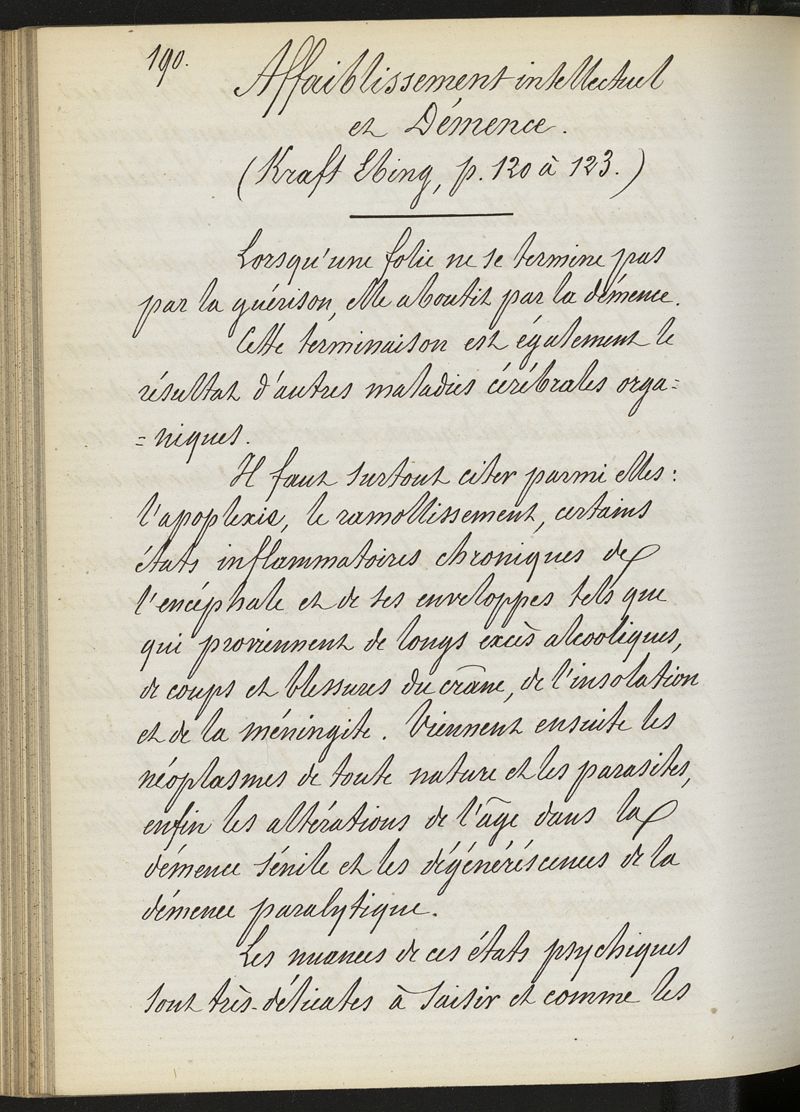 190.
Affaiblissement intellectuel
et Démence.
(Kraft Ebing, p. 120 à 123.)
Lorsqu'une folie ne se termine pas
par la guérison, elle aboutit par la démence.
Cette terminaison est également le
résultat d'autres maladies cérébrales orga=
= niques.
Il faut surtout citer parmi elles :
l'apoplexie, le ramollissement, certains
états inflammatoires chroniques de
l'encéphale et de ses enveloppes tels que
qui proviennent de longs excès alcooliques,
de coups et blessures du crâne, de l'insolation
et de la méningite. Viennent ensuite les
néoplasmes de toute nature et les parasites,
enfin les altérations de l'âge dans la
démence sénile et les dégénéréscences de la
démence paralytique.
Les nuances de ces états psychiques
sont très-délicates à saisir et comme les